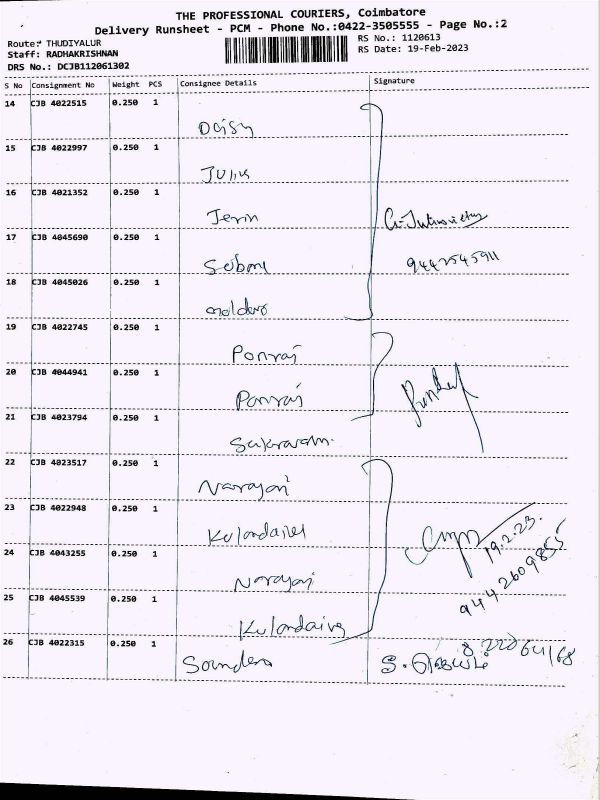 THE PROFESSIONAL COURIERS, Coimbatore
Delivery Runsheet - PCM - Phone No.:0422-3505555 - Page No.:2
Route: THUDIYALUR
RS No.: 1120613
Staff: RADHAKRISHNAN
RS Date: 19-Feb-2023
DRS No.: DCJB112061302
S No Consignment No Weight PCS Consignee Details Signature
14 CJB 4022515 0.250 1
Daisy
15 CJB 4022997 0.250 1
Julis
16 CJB 4021352 0.250 1
Jerin
17 CJB 4045690 0.250 1
9442545911
18 CJB 4045026 0.250 1
19 CJB 4022745 0.250 1
Ponraj
20 CJB 4044941 0.250 1
Ponraj
21 CJB 4023794 0.250 1
22 CJB 4023517 0.250 1
Narayan
23 CJB 4022948 0.250 1
19.2.23.
24 CJB 4043255 0.250 1
Narayan
9442609855
25 CJB 4045539 0.250 1
26 CJB 4022315 0.250 1